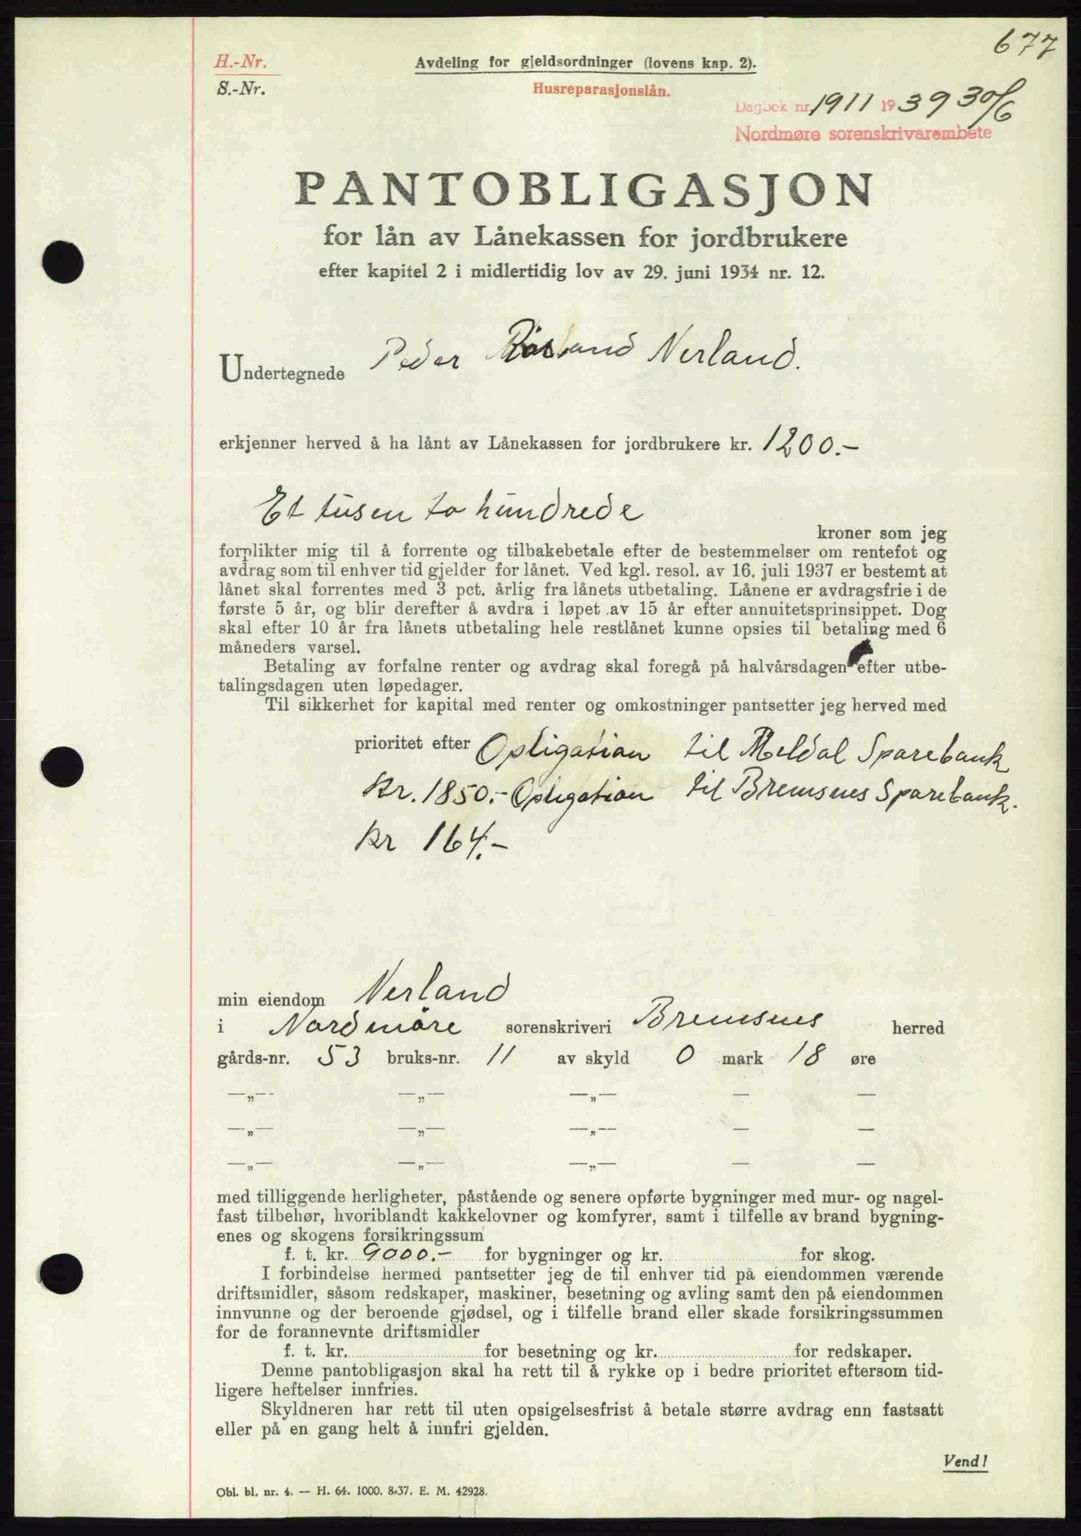 677
H.-Nr.
S.-Nr.
Avdeling for gjeldsordninger (lovens kap. 2).
Husreparasjonslån.
Dagbok nr. 1911 1939 30/6
Nordmøre sorenskrivarembete
PANTOBLIGASJON
for lån av Lånekassen for jordbrukere
efter kapitel 2 i midlertidig lov av 29. juni 1934 nr. 12.
Undertegnede Peder Nerland.
erkjenner herved å ha lånt av Lånekassen for jordbrukere kr. 1200.-
Et tusen to hundrede
kroner som jeg
forplikter mig til å forrente og tilbakebetale efter de bestemmelser om rentefot og
avdrag som til enhver tid gjelder for lånet. Ved kgl. resol. av 16. juli 1937 er bestemt at
lånet skal forrentes med 3 pct. årlig fra lånets utbetaling. Lånene er avdragsfrie i de
første 5 år, og blir derefter å avdra i løpet av 15 år efter annuitetsprinsippet. Dog
skal efter 10 år fra lånets utbetaling hele restlånet kunne opsies til betaling med 6
måneders varsel.
Betaling av forfalne renter og avdrag skal foregå på halvårsdagen efter utbe-
talingsdagen uten løpedager.
Til sikkerhet for kapital med renter og omkostninger pantsetter jeg herved med
prioritet efter Opligation til Meldal Sparebank
kr. 1850.- Opligation til Bremsnes Sparebank.
kr 164.-
min eiendom Nerland
i Nordmøre sorenskriveri Bremsnes herred
gårds-nr. 53 bruks-nr. 11 av skyld 0 mark 18 øre
—„— —„— —„— — —
—„— —„— —„— — —
—„— —„— —„— — —
med tilliggende herligheter, påstående og senere opførte bygninger med mur- og nagel-
fast tilbehør, hvoriblandt kakkelovner og komfyrer, samt i tilfelle av brand bygning-
enes og skogens forsikringssum
f. t. kr. 9000.- for bygninger og kr. for skog.
I forbindelse hermed pantsetter jeg de til enhver tid på eiendommen værende
driftsmidler, såsom redskaper, maskiner, besetning og avling samt den på eiendommen
innvunne og der beroende gjødsel, og i tilfelle brand eller skade forsikringssummen
for de forannevnte driftsmidler
f. t. kr. for besetning og kr. for redskaper.
Denne pantobligasjon skal ha rett til å rykke op i bedre prioritet eftersom tid-
ligere heftelser innfries.
Skyldneren har rett til uten opsigelsesfrist å betale større avdrag enn fastsatt
eller på en gang helt å innfri gjelden.
Vend!
Obl. bl. nr. 4. — H. 64. 1000. 8-37. E. M. 42928.